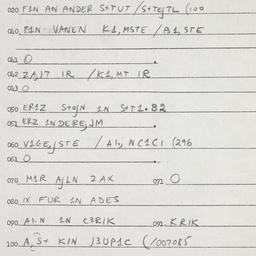 020 F1N AN ANDER S+TUT /S+TEJTL (100
040 F1N VANEN K1, MSTE / A1, STE
041 O
042 ZAJT IR /K1, MT IR
043 O
050 ER1Z S+OJN 1N S+T1.82
051 ERZ 1NDEREJJM
060 V1GEJSTE / A1, NC1C1 (296
061 O
070 M1R AJLN ZAX 071 O
080 IX FUR 1N ADES
090 A1.N 1N C3R1K 091 KR1K
100 A, S+ KIN J3UP1C (/007085